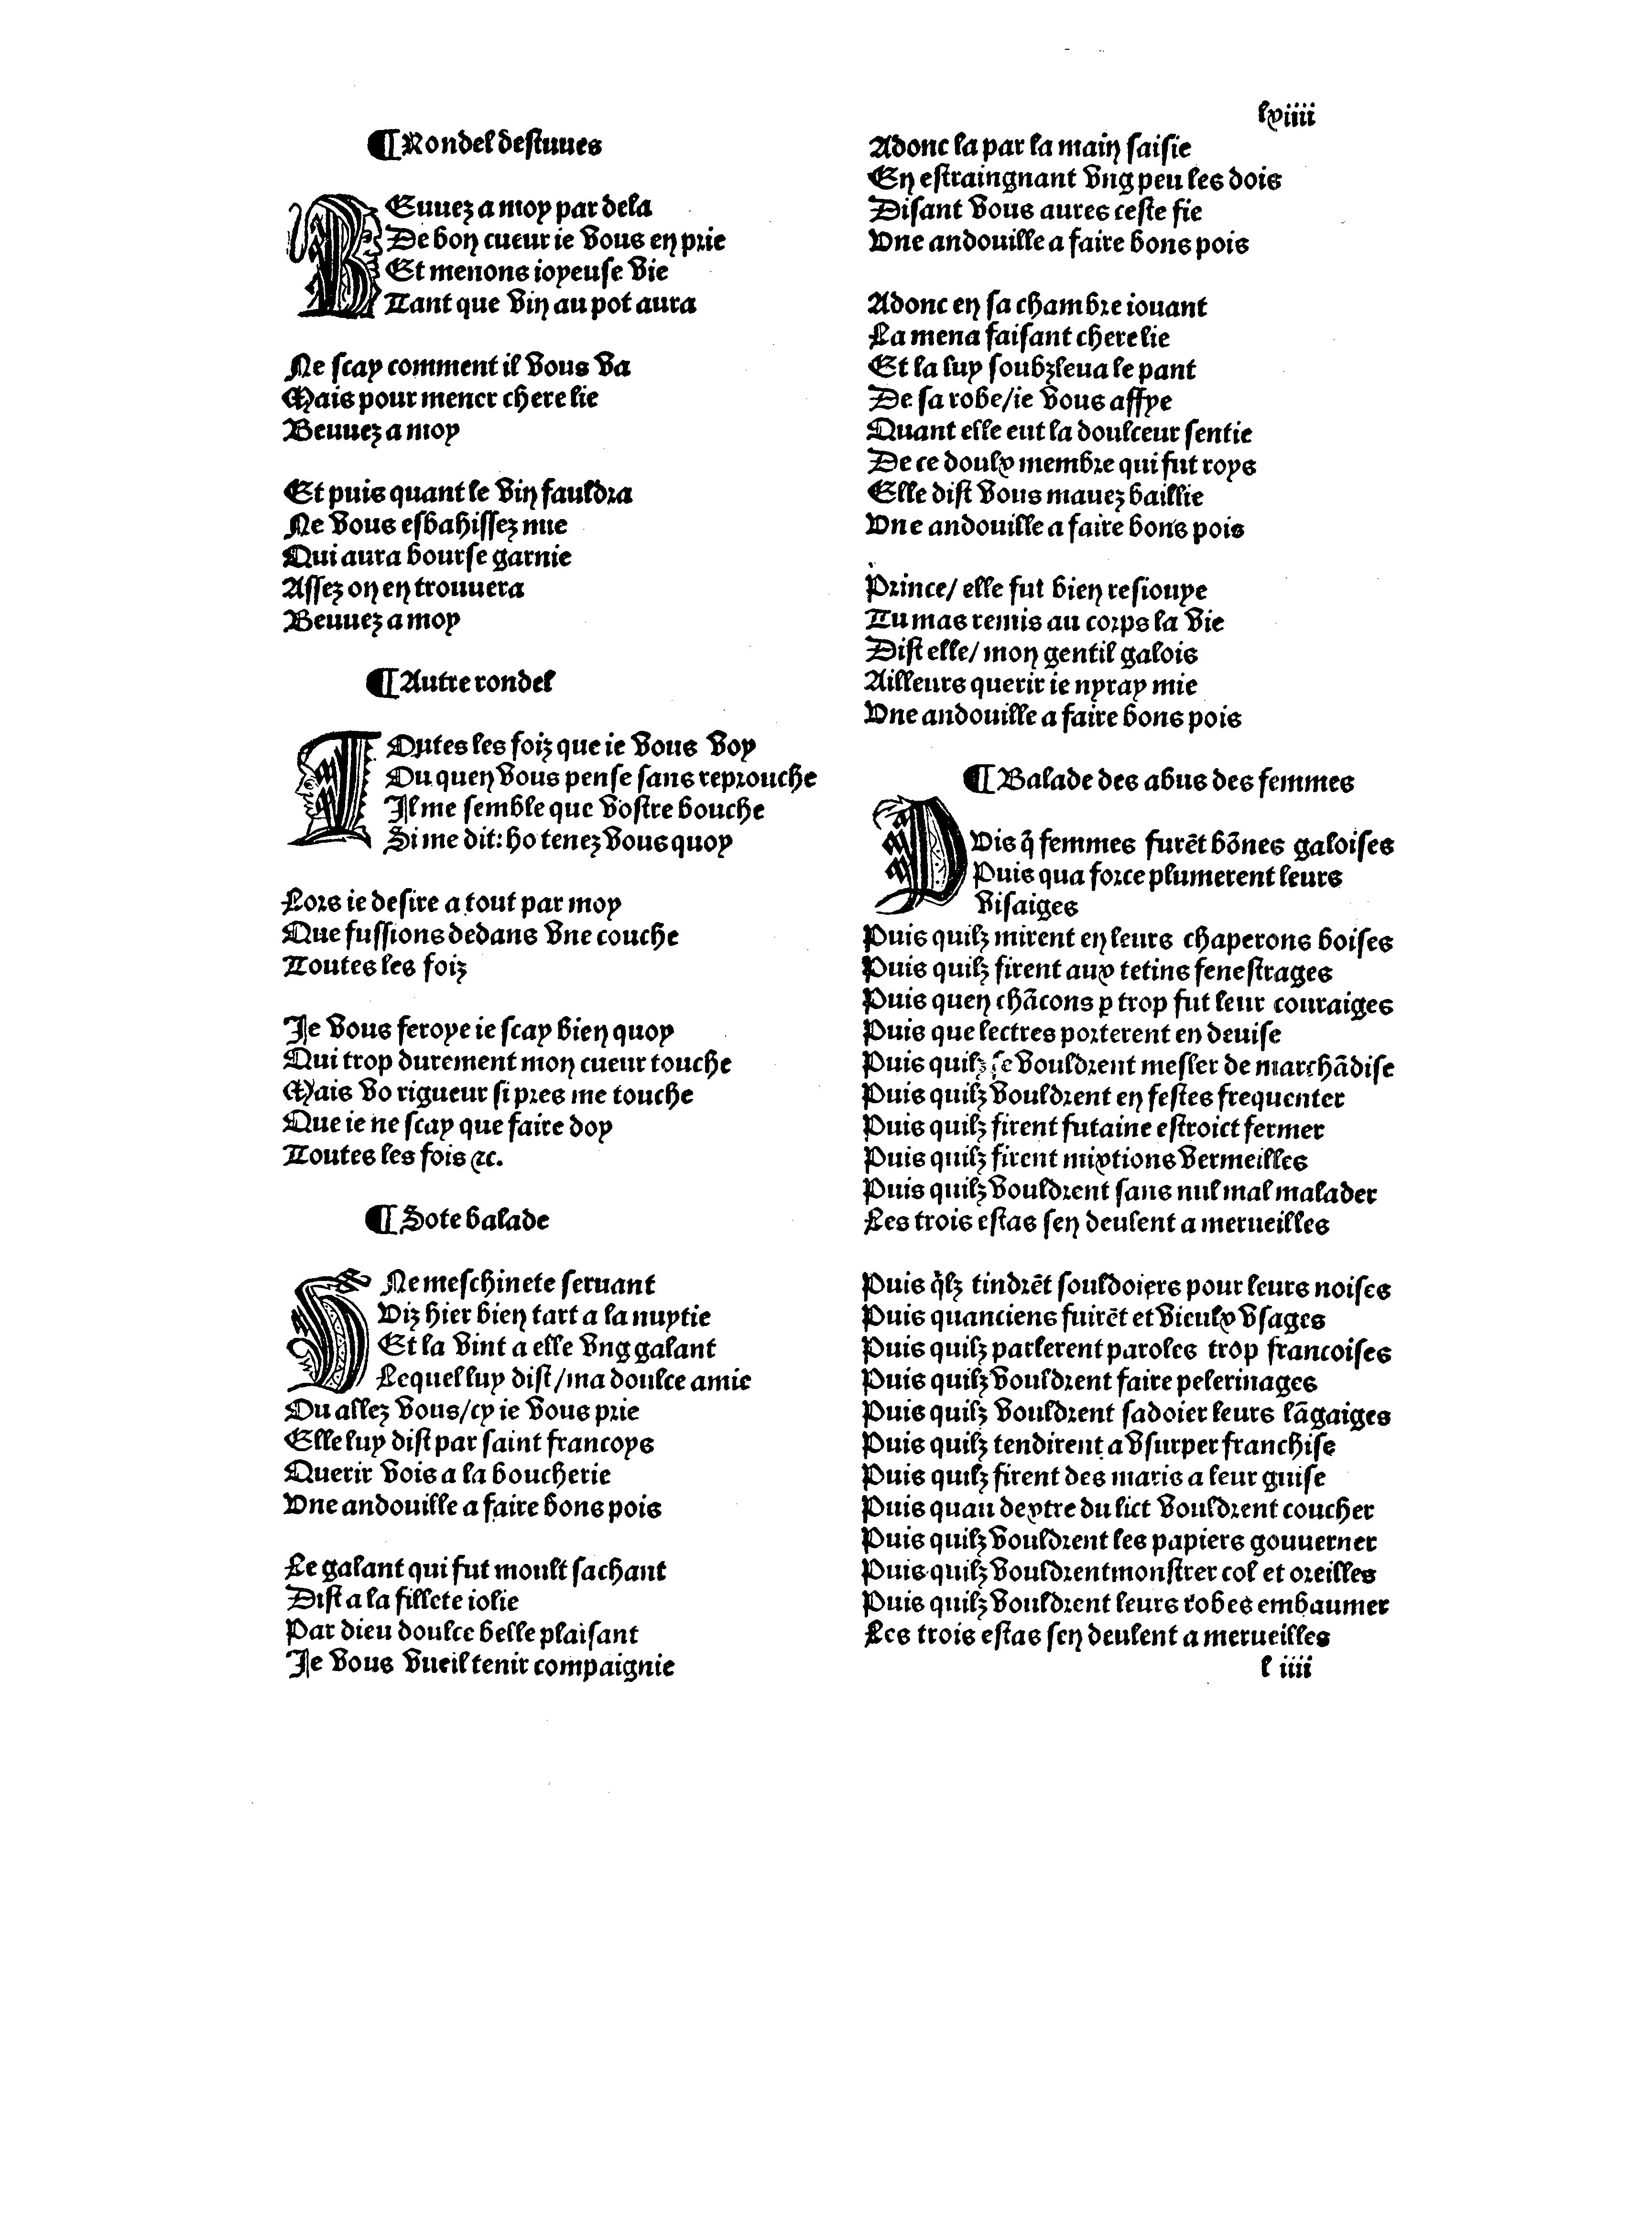 lxiiii
¶ Rondel destuues
BEuuez a moy par dela
De bon cueur ie vous en prie
Et menons ioyeuse vie
Tant que vin au pot aura
Ne scay comment il vous va
Mais pour mener chere lie
Beuuez a moy
Et puis quant le vin fauldra
Ne vous esbahissez mie
Qui aura bourse garnie
Assez on en trouuera
Beuuez a moy
¶ Autre rondel
TOutes les foiz que ie vous voy
Ou quen vous pense sans reprouche
Il me semble que vostre bouche
Si me dit: ho tenez vous quoy
Lors ie desire a tout par moy
Que fussions dedans vne couche
Toutes les foiz
Je vous feroye ie scay bien quoy
Qui trop durement mon cueur touche
Mais vo rigueur si pres me touche
Que ie ne scay que faire doy
Toutes les fois ⁊c.
¶ Sote balade
VNe meschinete seruant
Viz hier bien tart a la nuytie
Et la vint a elle vng galant
Lequel luy dist/ma doulce amie
Ou allez vous/cy ie vous prie
Elle luy dist par saint francoys
Querir vois a la boucherie
Vne andouille a faire bons pois
Le galant qui fut moult sachant
Dist a la fillete iolie
Par dieu doulce belle plaisant
Je vous vueil tenir compaignie
Adonc la par la main saisie
En estraingnant vng peu les dois
Disant vous aures ceste fie
Vne andouille a faire bons pois
Adonc en sa chambre iouant
La mena faisant chere lie
Et la luy soubzleua le pant
De sa robe/ie vous affye
Quant elle eut la doulceur sentie
De ce doulx membre qui fut roys
Elle dist vous mauez baillie
Vne andouille a faire bons pois
Prince/ elle fut bien resiouye
Tu mas remis au corps la vie
Dist elle/ mon gentil galois
Ailleurs querir ie nyray mie
Vne andouille a faire bons pois
¶ Balade des abus des femmes
PVis q̃ femmes furẽt bõnes galoises
Puis qua force plumerent leurs
visaiges
Puis quilz mirent en leurs chaperons boises
Puis quilz firent aux tetins fenestrages
Puis quen chãcons ꝑ trop fut leur couraiges
Puis que lectres porterent en deuise
Puis quilz se vouldrent mesler de marchãdise
Puis quilz vouldrent en festes frequenter
Puis quilz firent futaine estroict fermer
Puis quilz firent mixtions vermeilles
Puis quilz vouldrent sans nul mal malader
Les trois estas sen deulent a merueilles
Puis q̃lz tindrẽt souldoiers pour leurs noises
Puis quanciens fuirẽt et vieulx vsages
Puis quilz parlerent paroles trop francoises
Puis quilz vouldrent faire pelerinages
Puis quilz vouldrent sadoier leurs lãgaiges
Puis quilz tendirent a vsurper franchise
Puis quilz firent des maris a leur guise
Puis quau dextre du lict vouldrent coucher
Puis quilz vouldrent les papiers gouuerner
Puis quilz vouldrent monstrer col et oreilles
Puis quilz vouldrent leurs robes embaumer
Les trois estas sen deulent a merueilles
l iiii